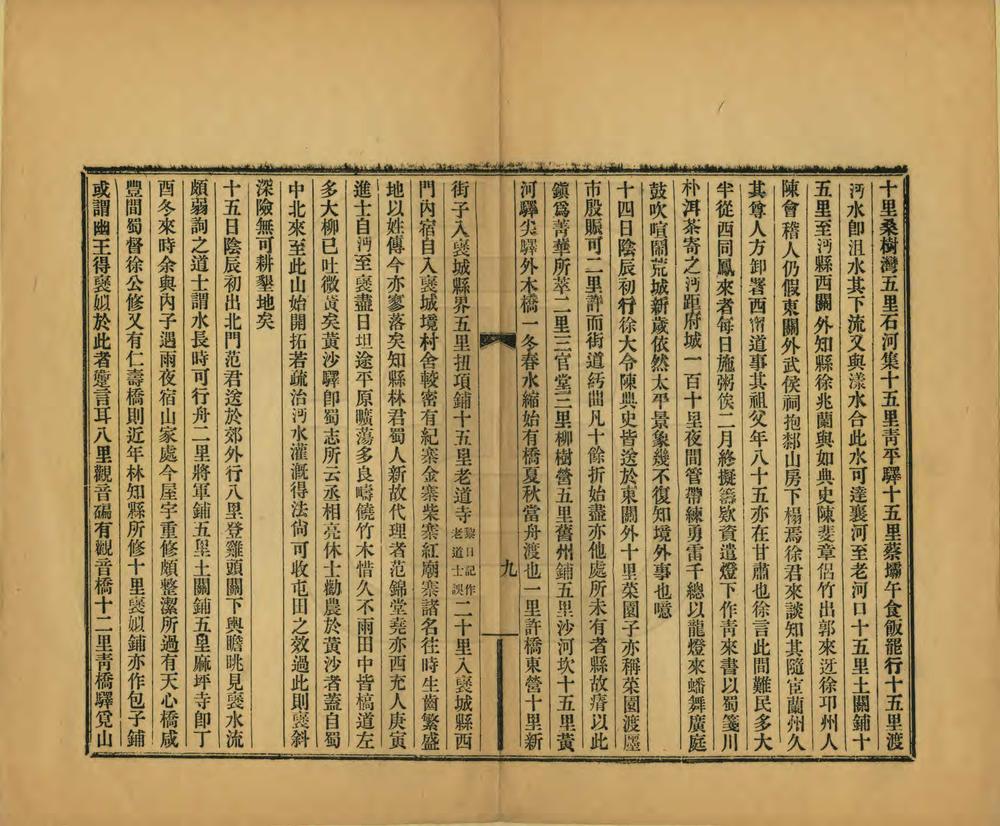 十里桑樹灣五里石河集十五里青平驛十五里蔡壩午食飯罷行十五里渡
沔水卽沮水其下流又與漾水合此水可達襄河至老河口十五里土關鋪十
五里至沔縣西關外知縣徐兆蘭與如典史陳斐章侶竹出郭來迓徐邛州人
陳會稽人仍假東關外武侯祠抱鄰山房下榻焉徐君來談知其隨宦蘭州久
其尊人方卸署西甯道事其祖父年八十五亦在甘肅也徐言此間難民多大
半從西同鳳來者每日施粥俟二月終擬籌欵資遣燈下作青來書以蜀箋川
朴洱茶寄之沔距府城一百十里夜間管帶練勇雷千總以龍燈來蟠舞廣庭
鼓吹喧鬧荒城新歲依然太平景象幾不復知境外事也噫
十四日陰辰初行徐大令陳典史皆送於東關外十里菜園子亦稱菜園渡廛
市殷賑可二里許而街道紆曲凡十餘折始盡亦他處所未有者縣故瘠以此
鎭爲菁華所萃二里三官堂三里柳樹營五里舊州鋪五里沙河坎十五里黃
河驛尖驛外木橋一冬春水縮始有橋夏秋當舟渡也一里許橋東營十里新
九
街子入襃城縣界五里扭項鋪十五里老道寺黎日記作老道士誤二十里入襃城縣西
門內宿自入襃城境村舍較密有紀寨金寨柴寨紅廟寨諸名往時生齒繁盛
地以姓傳今亦寥落矣知縣林君蜀人新故代理者范錦堂堯亦西充人庚寅
進士自沔至襃盡日坦途平原曠蕩多良疇饒竹木惜久不雨田中皆槁道左
多大柳已吐微黃矣黃沙驛卽蜀志所云丞相亮休士勸農於黃沙者蓋自蜀
中北來至此山始開拓若疏治沔水灌漑得法尙可收屯田之效過此則襃斜
深險無可耕墾地矣
十五日陰辰初出北門范君送於郊外行八里登雞頭關下輿瞻眺見襃水流
頗弱詢之道士謂水長時可行舟二里將軍鋪五里土關鋪五里麻坪寺卽丁
酉冬來時余與內子遇雨夜宿山家處今屋宇重修頗整潔所過有天心橋咸
豐間蜀督徐公修又有仁壽橋則近年林知縣所修十里襃姒鋪亦作包子鋪
或謂幽王得襃姒於此者蹵言耳八里觀音碥有觀音橋十二里青橋驛覓山